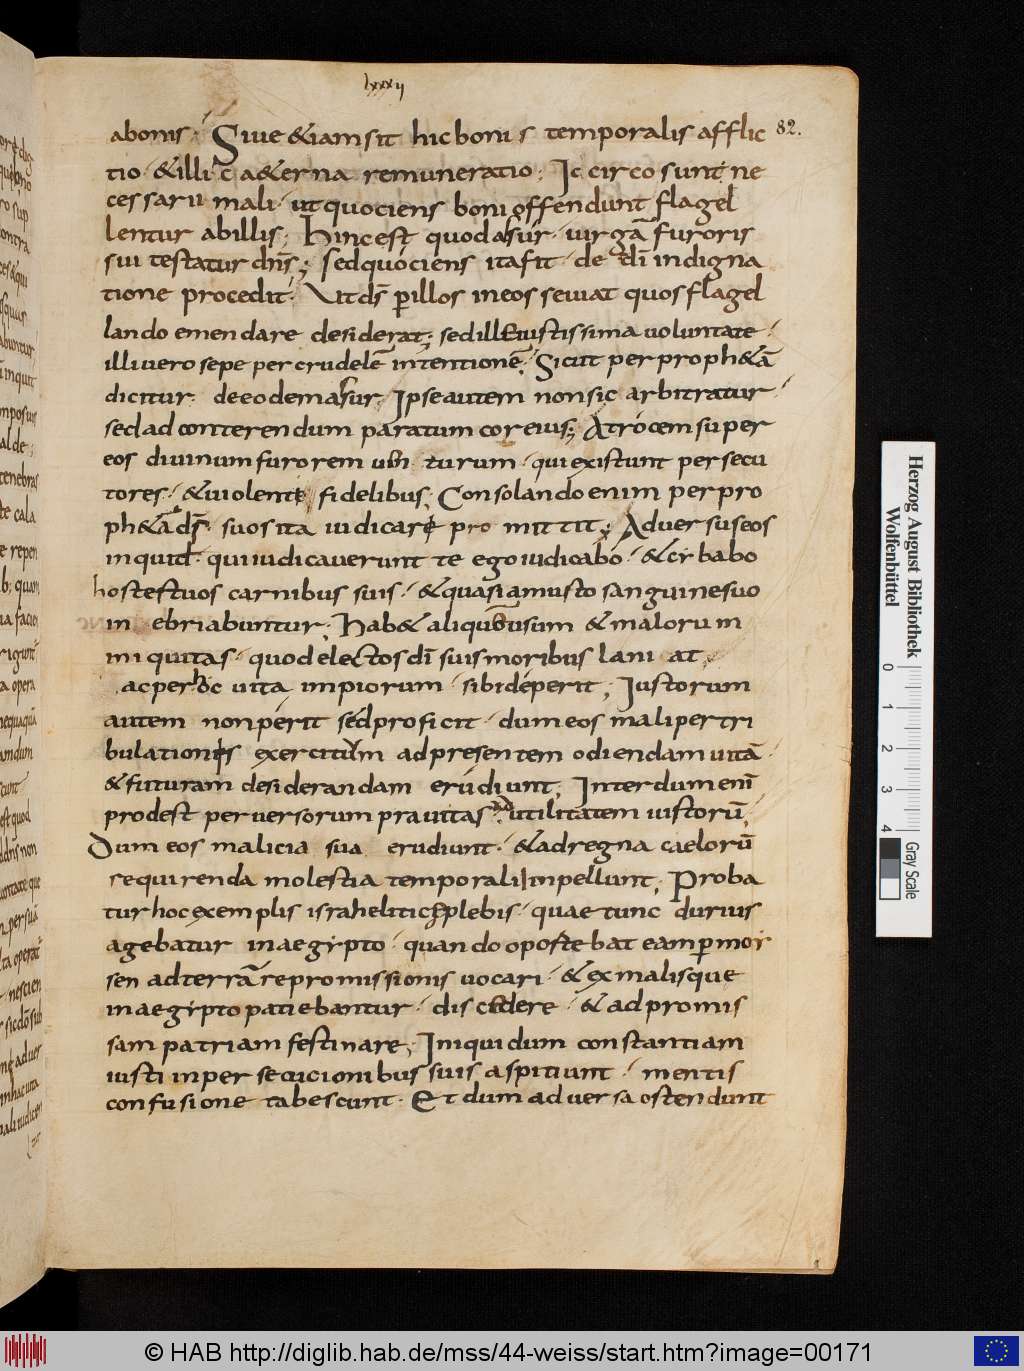 lxxxii
82.
abonis. Siue &iam sit hic bonis temporalis afflic
tio. &illic a&erna remuneratio; Iccirco sunt ne
cessarii mali. ut quociens boni offendunt flagel
lentur abillis; Hinc est quod assur. uirgā furoris
sui testatur dn̄s; sed quociens ita fit. de dī indigna
tione procedit. Vt ds̄ ꝑ illos in eos seuiat quos flagel
lando emendare desiderat; sed ille iustissima uoluntate.
illi uero sepe per crudelē intentionē. Sicut per proph&ā
dicitur. de eodem assur. Ipse autem non sic arbitratur
sed ad conterendum paratum cor eius; Atrocem super
eos diuinum furorem uenturum. qui existunt persecu
tores. &uiolenti fidelibus; Consolando enim per pro
ph&ā ds̄. suos ita iudicare promittit; Aduersus eos
inquid. qui iudicauerunt te ego iudicabo. &cybabo
hostes tuos carnibus suis. &quasi a musto sanguine suo
inebriabuntur; Hab& aliquē usum &malorum
iniquitas. quod electos dī suis moribus laniat.
ac per hoc uita impiorum. sibi deperit; Iustorum
autem non perit sed proficit. dum eos mali per tri
bulationis exercitium ad presentem odiendam uitā
&futuram desiderandam erudiunt; Interdum enī
prodest peruersorum prauitas ad utilitatem iustorū;
Dum eos malicia sua erudiunt. &ad regna caelorū
requirenda molestia temporali inpellunt; Proba
tur hoc exemplis israhelitice plebis. quae tunc durius
agebatur in aegypto. quando oportebat eam ꝑ moi
sen ad terrā repromissionis uocari. &ex malis que
in aegypto patiebantur. discedere. &ad promis
sam patriam festinare; Iniqui dum constantiam
iusti in persecucionibus suis aspitiunt. mentis
confusione tabescunt. Et dum aduersa ostendunt
Herzog August Bibliothek
Wolfenbüttel
0 1 2 3 4
Gray Scale
© HAB http://diglib.hab.de/mss/44-weiss/start.htm?image=00171